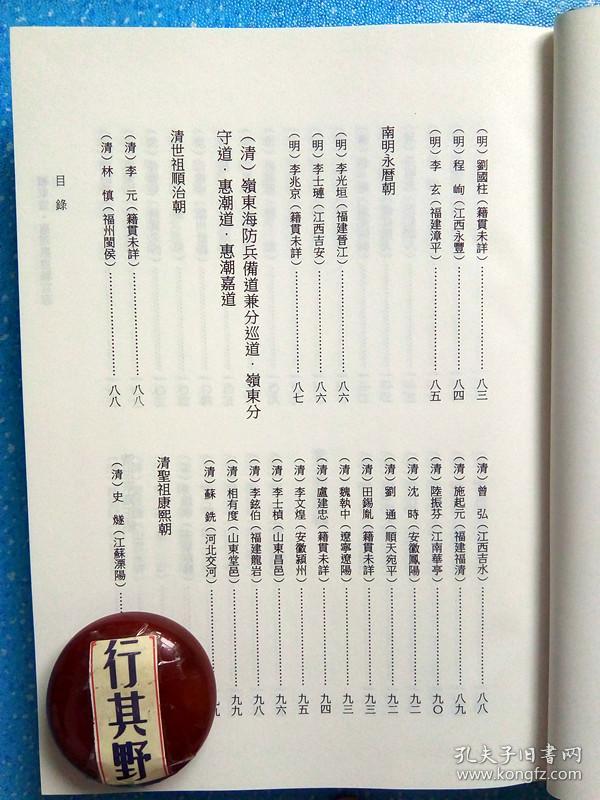 (明) 劉國柱 (籍貫未詳)……八三
(明) 程 峋 (江西永豐)……八四
(明) 李 玄 (福建漳平)……八五
南明永曆朝
(明) 李光垣 (福建晉江)……八六
(明) 李士璉 (江西吉安)……八六
(明) 李兆京 (籍貫未詳)……八七
(清) 嶺東海防兵備道兼分巡道·嶺東分
守道·惠潮道·惠潮嘉道
清世祖順治朝
(清) 李 元 (籍貫未詳)……八八
(清) 林 慎 (福州閩侯)……八八
(清) 曾 弘 (江西吉水)……八八
(清) 施起元 (福建福清)……八九
(清) 陸振芬 (江南華亭)……九〇
(清) 沈 時 (安徽鳳陽)……九二
(清) 劉 通 (順天宛平)……九二
(清) 田錫胤 (籍貫未詳)……九三
(清) 魏執中 (遼寧遼陽)……九三
(清) 盧建忠 (籍貫未詳)……九四
(清) 李文煌 (安徽潁州)……九五
(清) 李士楨 (山東昌邑)……九六
(清) 李鉉伯 (福建龍岩)……九八
(清) 相有度 (山東堂邑)……九九
(清) 蘇 銑 (河北交河)……九九
清聖祖康熙朝
(清) 史 燧 (江蘇溧陽)……
目錄
行其野
孔夫子旧書网
www.kongfz.com